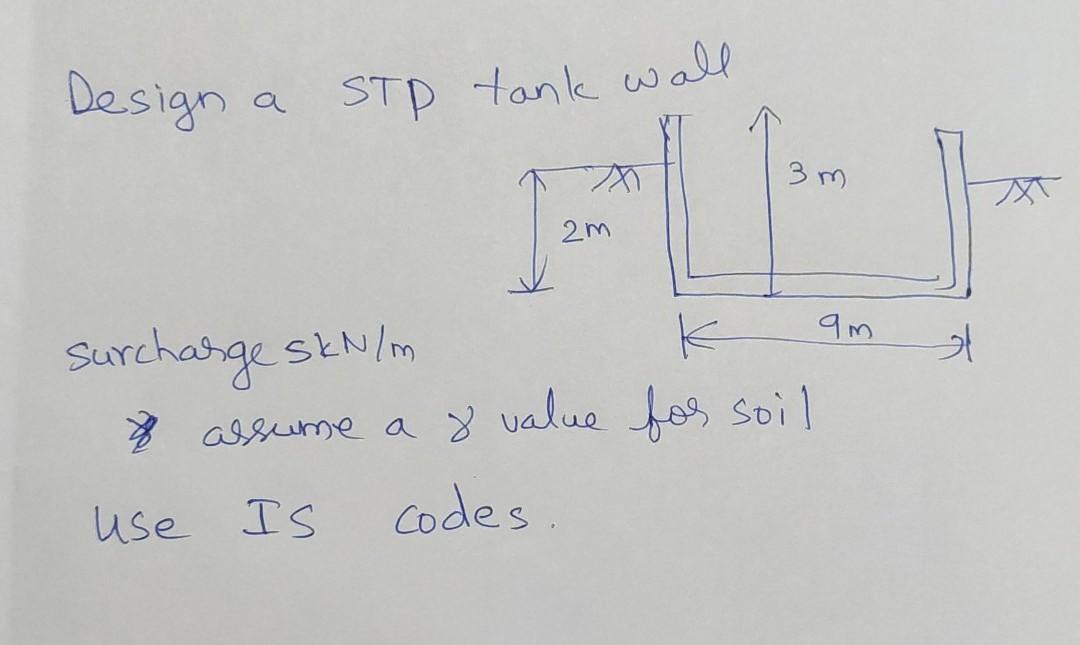 Design a STP tank wall
3m
2m
9m
surcharge 5kN/m
assume a γ value for soil
use IS codes.